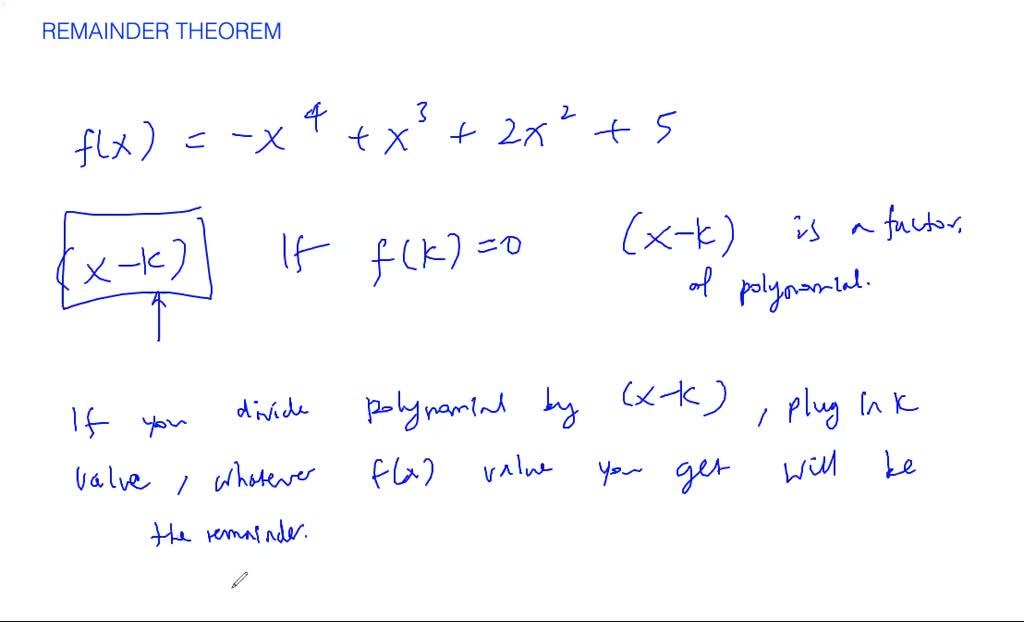 REMAINDER THEOREM
f(x) = -x⁴ + x³ + 2x² + 5
(x-k) If f(k)=0 (x-k) is a factor.
of polynomial.
If you divide polynomial by (x-k), plug in k
value, whatever f(x) value you get will be
the remainder.